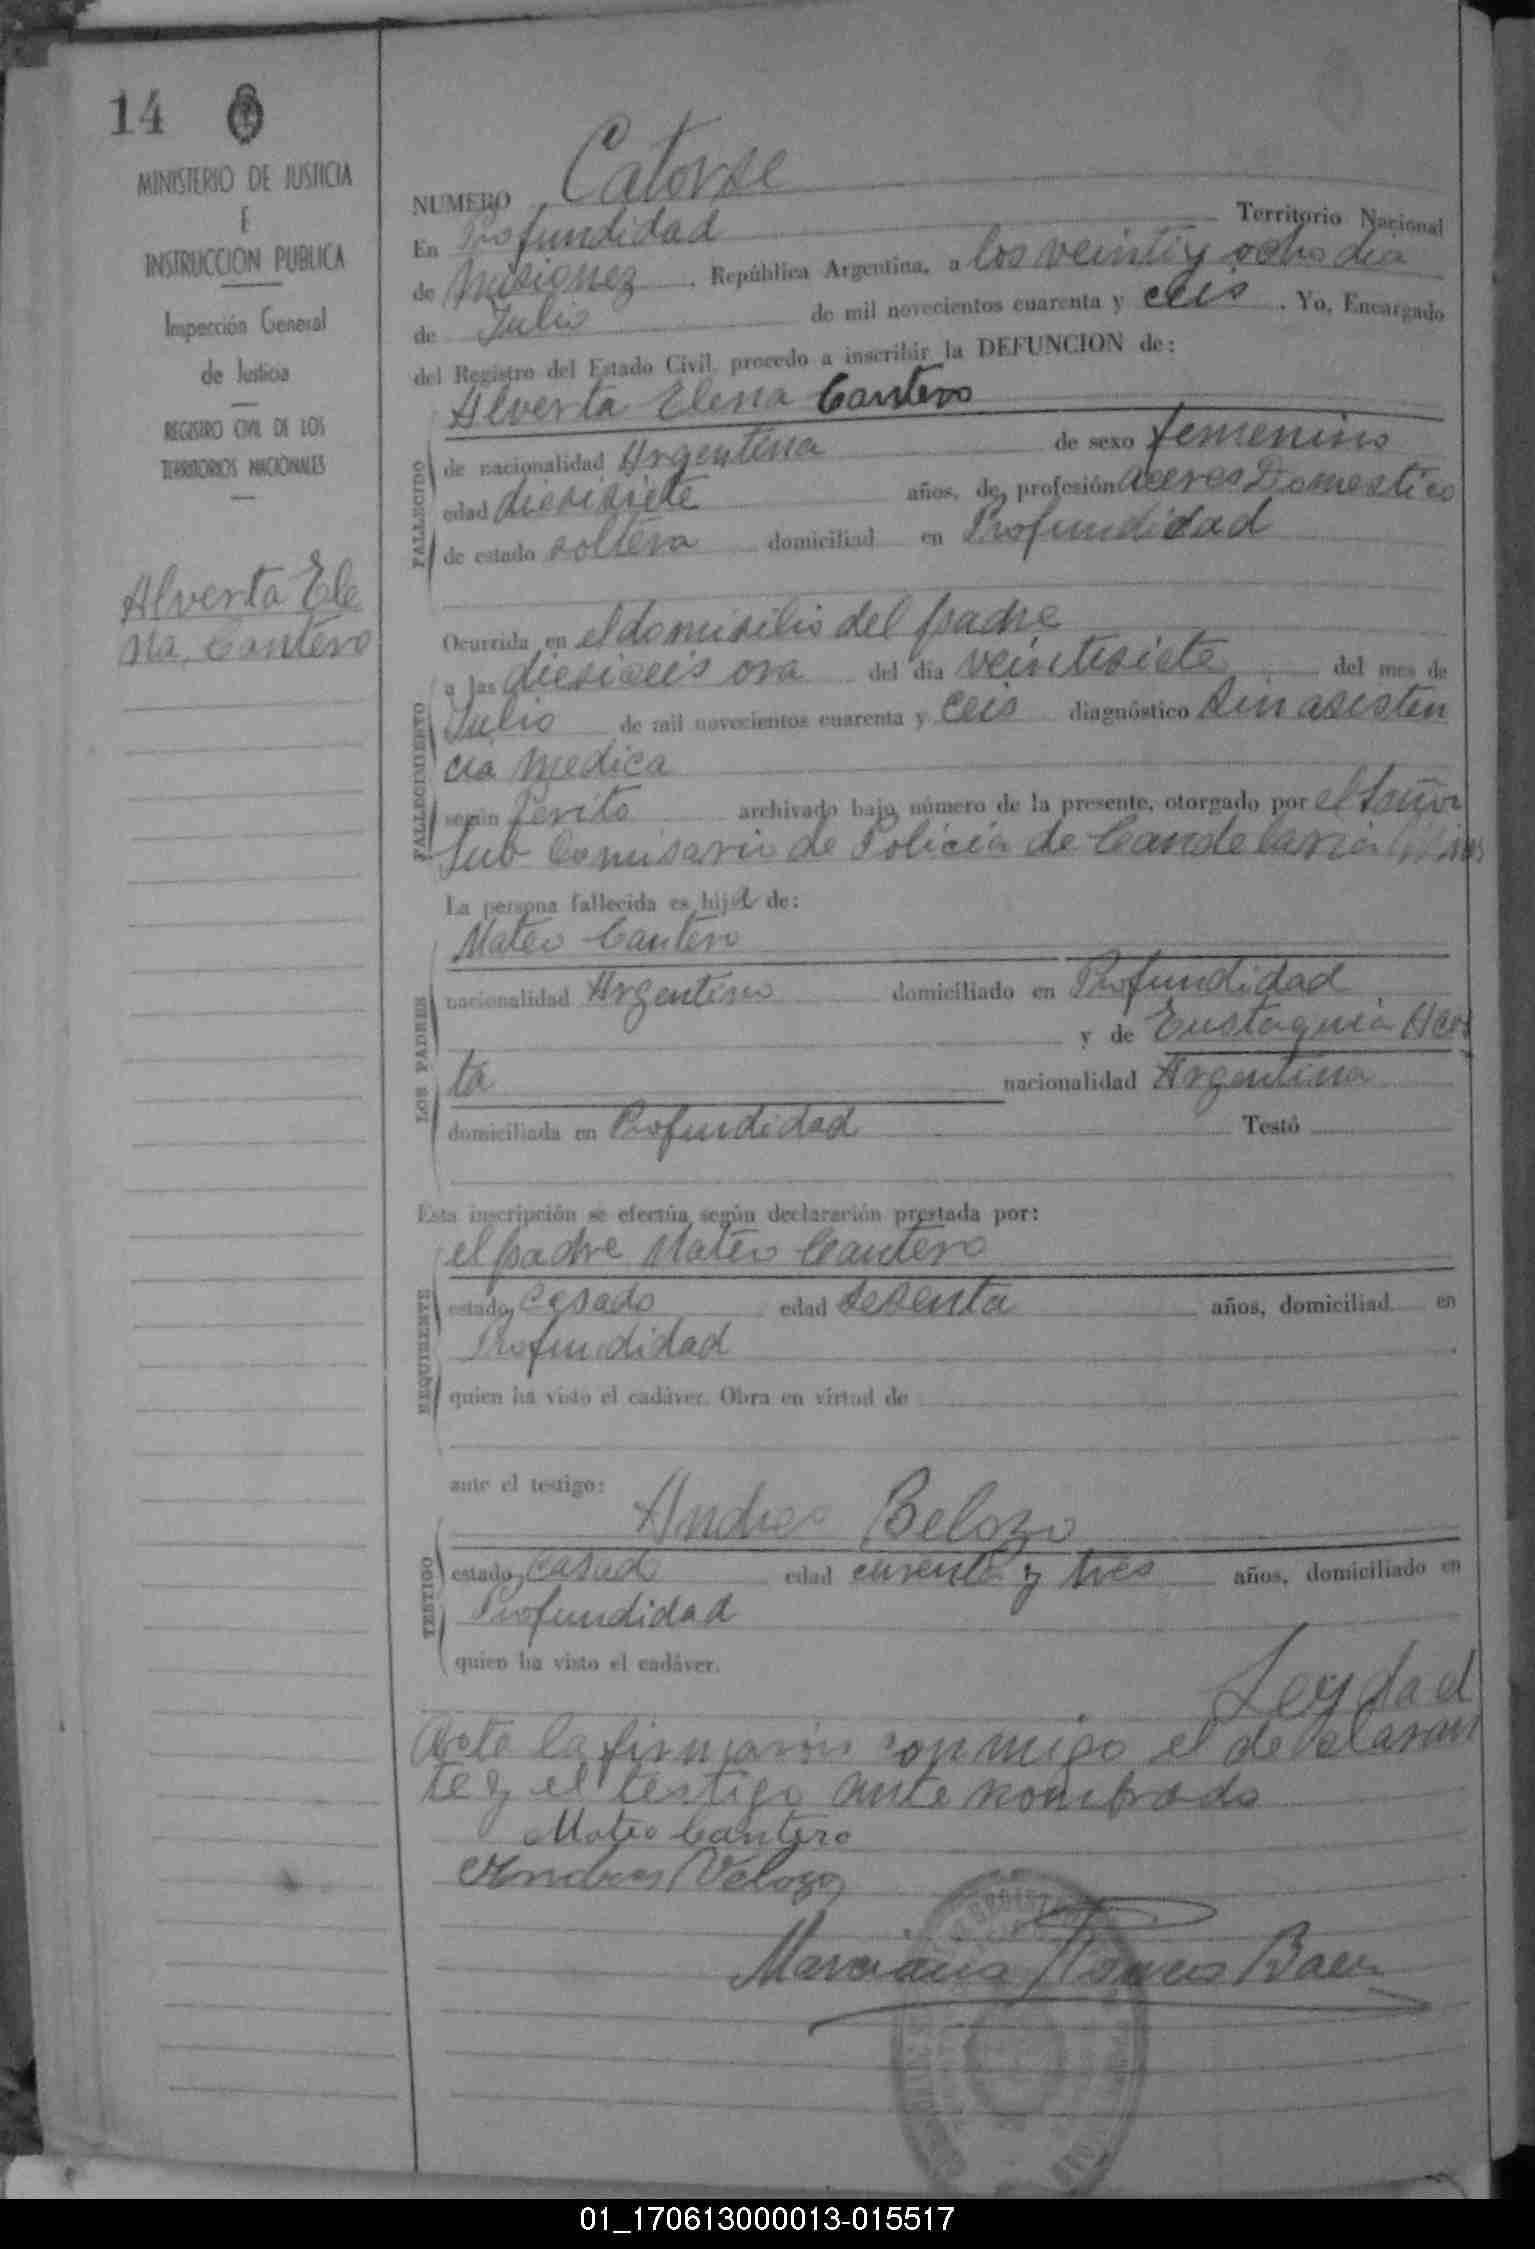 14
MINISTERIO DE JUSTICIA
E
INSTRUCCIÓN PUBLICA
Inspección General
de Justicia
REGISTRO CIVIL DE LOS
TERRITORIOS NACIONALES
Alverta Ele
na Cantero
NUMERO Catorse
En Profundidad Territorio Nacional
de Misionez, República Argentina, a los veinti y ocho dia
de Julio de mil novecientos cuarenta y ceis. Yo, Encargado
del Registro del Estado Civil, procedo a inscribir la DEFUNCION de:
FALLECIDO
Alverta Elena Cantero
de nacionalidad Argentina de sexo femenino
edad diesisiete años, de profesión Domestico
de estado soltera domiciliad en Profundidad
FALLECIMIENTO
Ocurrida en el domisilio del padre
a las diesiseis ora del día veintisiete del mes de
Julio de mil novecientos cuarenta y ceis diagnóstico Sin asisten
cia medica
según Perito archivado bajo número de la presente, otorgado por el Señor
Sub Comisario de Policia de Candelaria
La persona fallecida es hija de:
LOS PADRES
Mateo Cantero
nacionalidad Argentino domiciliado en Profundidad
y de Eustaquia Acos
ta nacionalidad Argentina
domiciliada en Profundidad Testó
Esta inscripción se efectúa según declaración prestada por:
REQUIRENTE
el padre Mateo Cantero
estado Casado edad sesenta años, domiciliad en
Profundidad
quien ha visto el cadáver. Obra en virtud de
ante el testigo:
TESTIGO
Andres Belozo
estado Casado edad curenta y tres años, domiciliado en
Profundidad
quien ha visto el cadáver.
Leyda el
Acta la firmaron conmigo el declaran
te y el testigo ante nombrado
Mateo Cantero
Andres Velozo
Baez
01_170613000013-015517